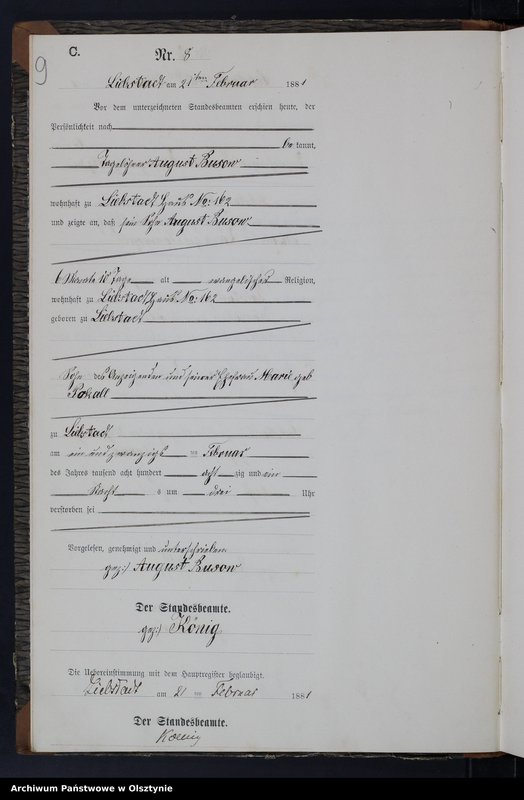 9
C.
Nr. 8
Liebstadt am 21ten Februar 1881
Vor dem unterzeichneten Standesbeamten erschien heute, der
Persönlichkeit nach
be kannt,
Tagelöhner August Busow
wohnhaft zu Liebstadt Haus No: 162
und zeigte an, daß sein Sohn August Busow
6 Monate 10 Tage alt evangelischer Religion,
wohnhaft zu Liebstadt Haus No: 162
geboren zu Liebstadt
Sohn des Anzeigenden und seiner Ehefrau Marie geb
Pokall
zu Liebstadt
am ein und zwanzigsten Februar
des Jahres tausend acht hundert acht zig und ein
Nachts um drei Uhr
verstorben sei
Vorgelesen, genehmigt und unterschrieben
gez:) August Busow
Der Standesbeamte.
gez:) König
Die Uebereinstimmung mit dem Hauptregister beglaubigt.
Liebstadt am 21 ten Februar 1881
Der Standesbeamte.
Koenig
Archiwum Państwowe w Olsztynie